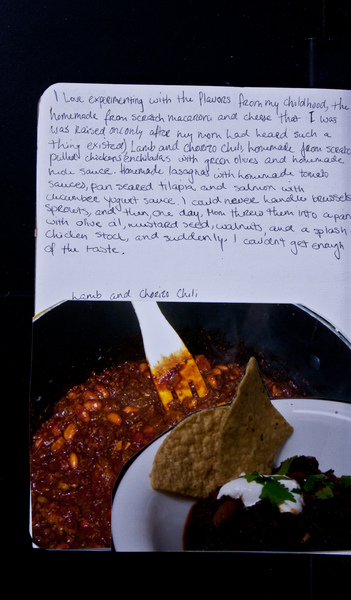 I Love experimenting with the flavors from my childhood, the
homemade from scratch macaroni and cheese that I was
was raised on (only after my mom had heard such a
thing existed), Lamb and chorizo chili, homemade from scratch
pulled chicken enchiladas with green olives and homemade
sauce. Homemade lasagnas with homemade tomato
sauces, pan seared tilapia and salmon with
cucumber yogurt sauce. I could never handle brussels
sprouts, and then, one day, Mom threw them into a pan
with olive oil, mustard seed, walnuts, and a splash of
chicken stock, and suddenly, I couldn't get enough
of the taste.
Lamb and Chorizo Chili